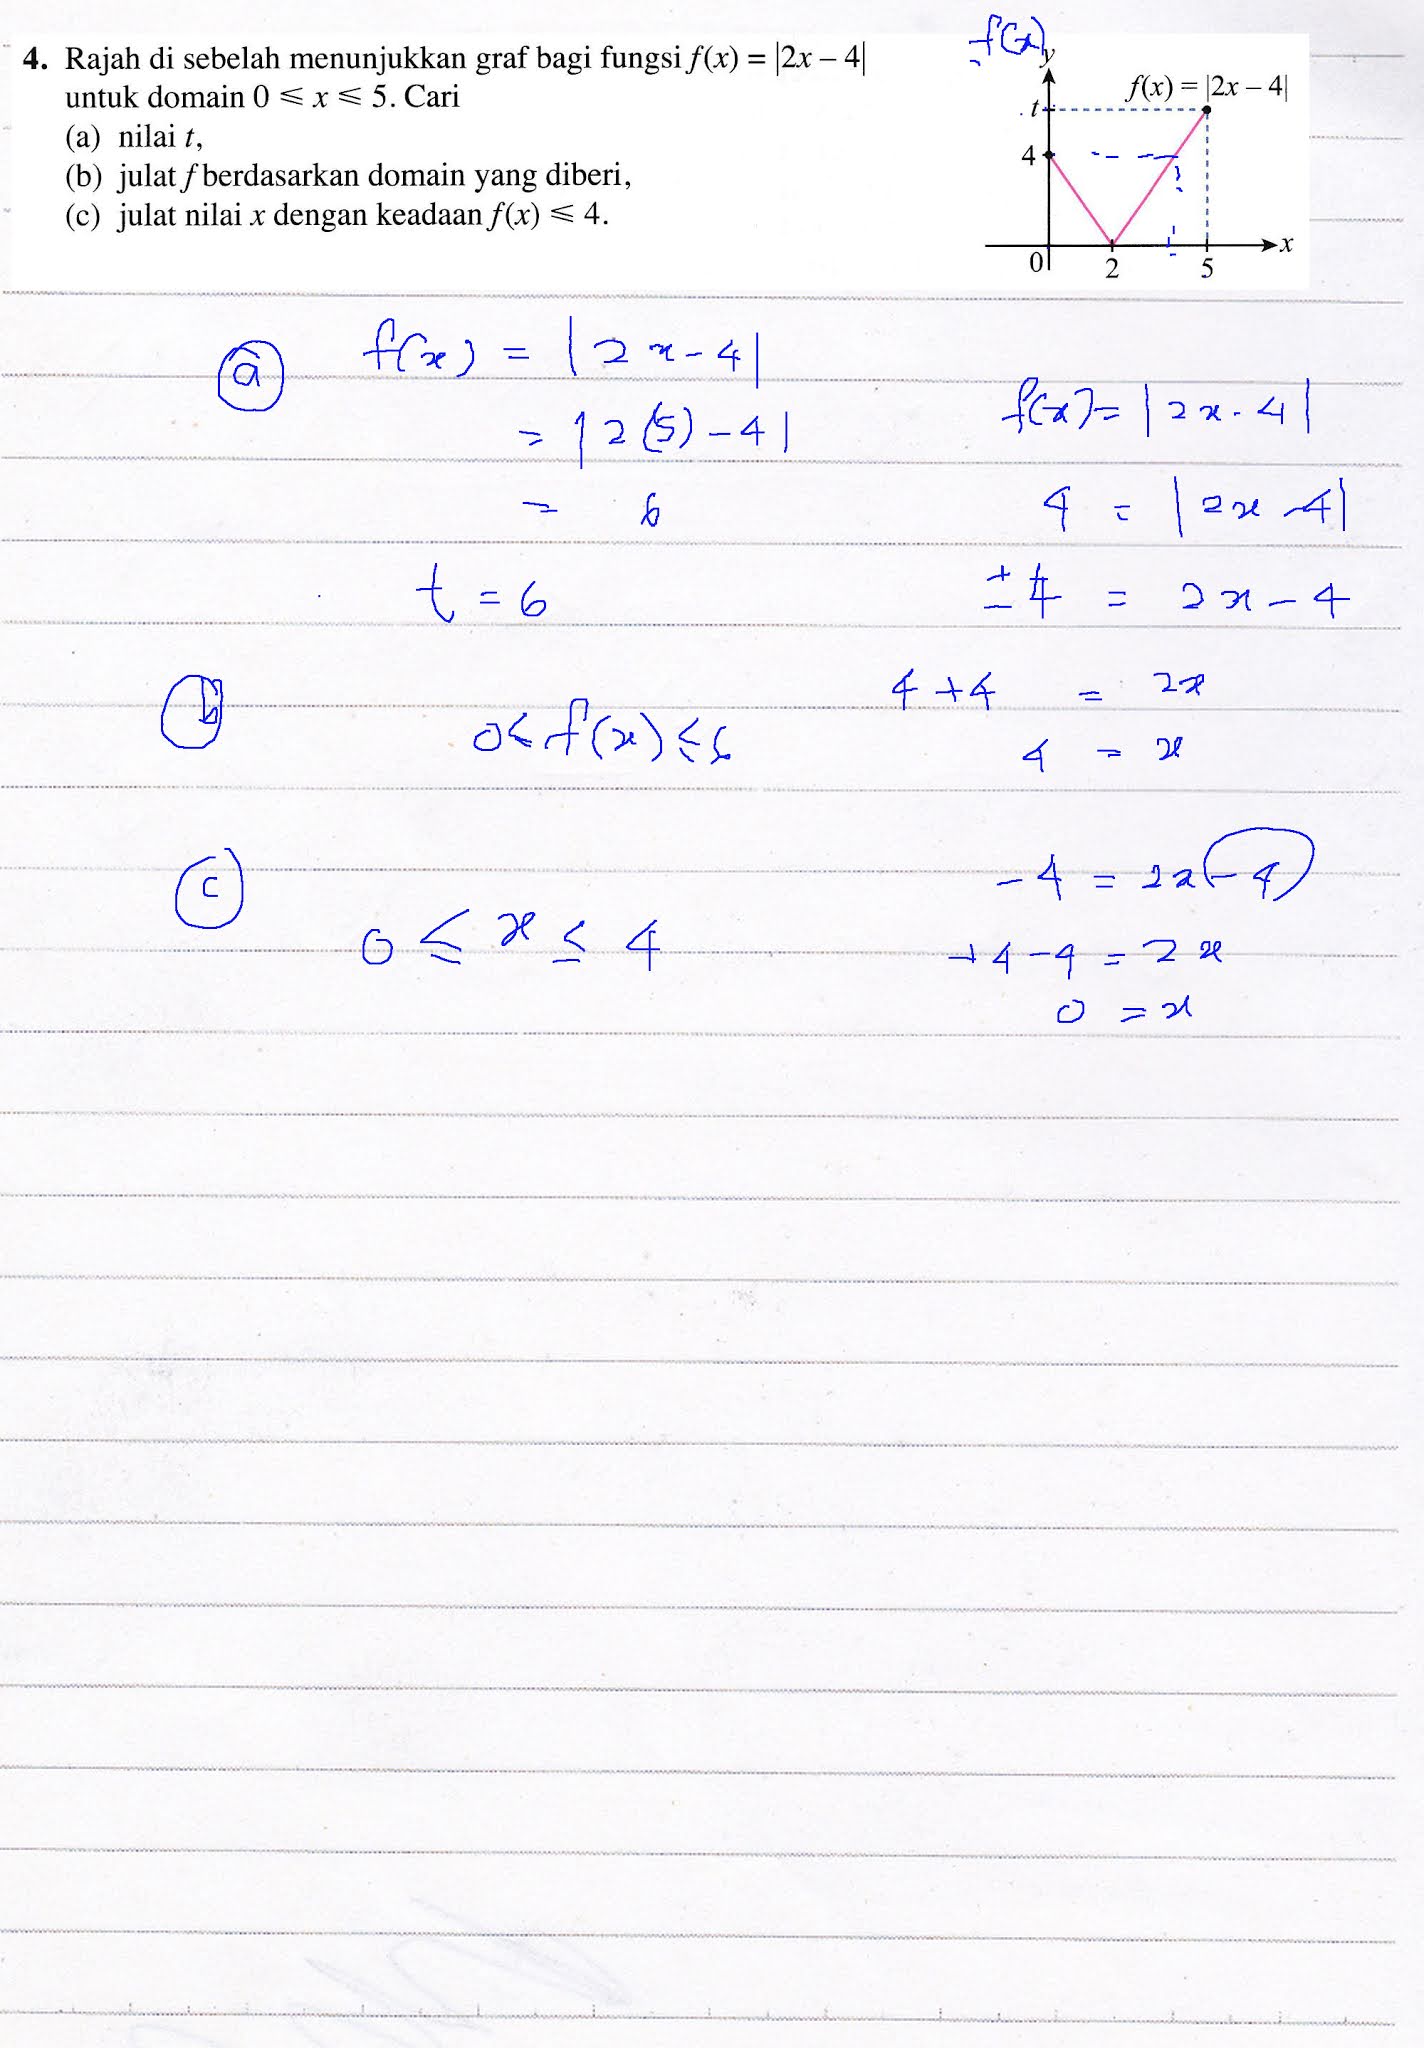 4. Rajah di sebelah menunjukkan graf bagi fungsi f(x) = |2x – 4|
untuk domain 0 ⩽ x ⩽ 5. Cari
(a) nilai t,
(b) julat f berdasarkan domain yang diberi,
(c) julat nilai x dengan keadaan f(x) ⩽ 4.
f(x)
y
f(x) = |2x – 4|
t
4
0
2
5
x
(a) f(x) = |2x - 4|
= |2(5) - 4|
= 6
t = 6
(b) 0 ≤ f(x) ≤ 6
(c) 0 ≤ x ≤ 4
f(x) = |2x - 4|
4 = |2x - 4|
± 4 = 2x - 4
4 + 4 = 2x
4 = x
- 4 = 2x - 4
+ 4 - 4 = 2x
0 = x